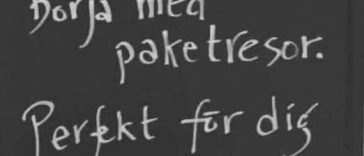 Börja med
paketresor.
Perfekt för dig